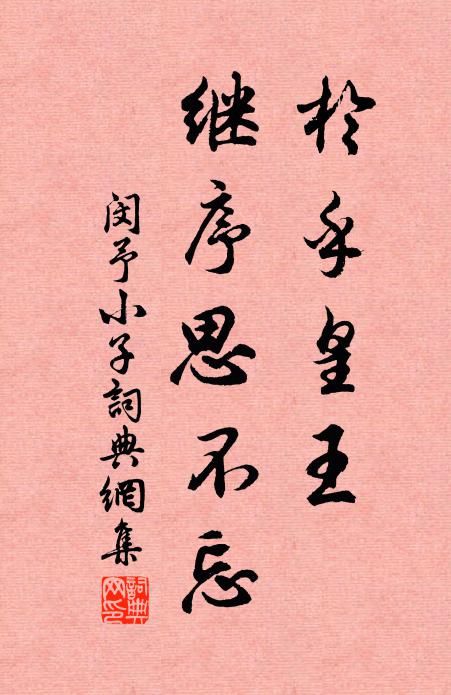 於乎皇王
继序思不忘
闵予小子詞典網集
詞典
网印